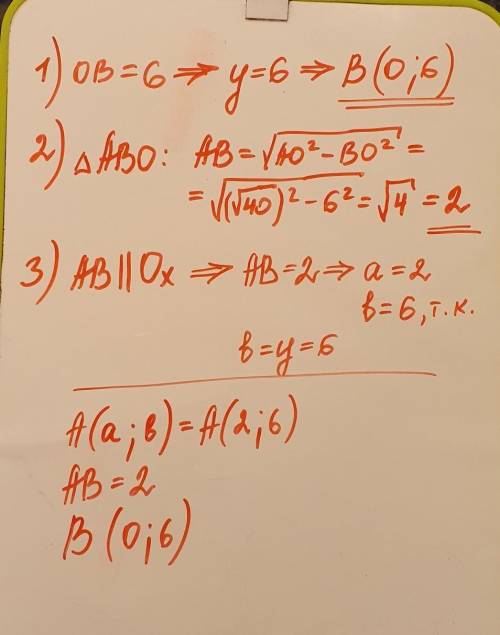 1) OB = 6 ⇒ y = 6 ⇒ B(0;6)
2) △ABO: AB = √(AO² − BO²) =
= √((√40)² − 6²) = √4 = 2
3) AB || Ox ⇒ AB = 2 ⇒ a = 2
в = 6, т.к.
в = y = 6
A(a;в) = A(2;6)
AB = 2
B(0;6)